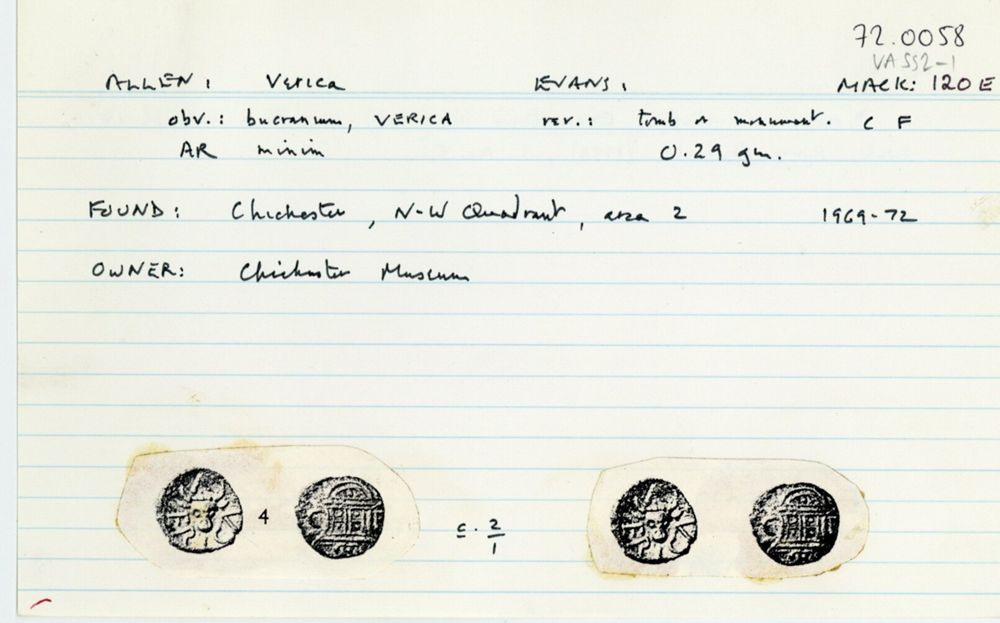 72.0058
VA552-1
ALLEN: Verica EVANS: MACK: 120E
obv.: bucranium, VERICA rev.: tomb or monument. C F
AR minim 0.29 gm.
FOUND: Chichester, N-W Quadrant, area 2 1969-72
OWNER: Chichester Museum
4 c. 2/1